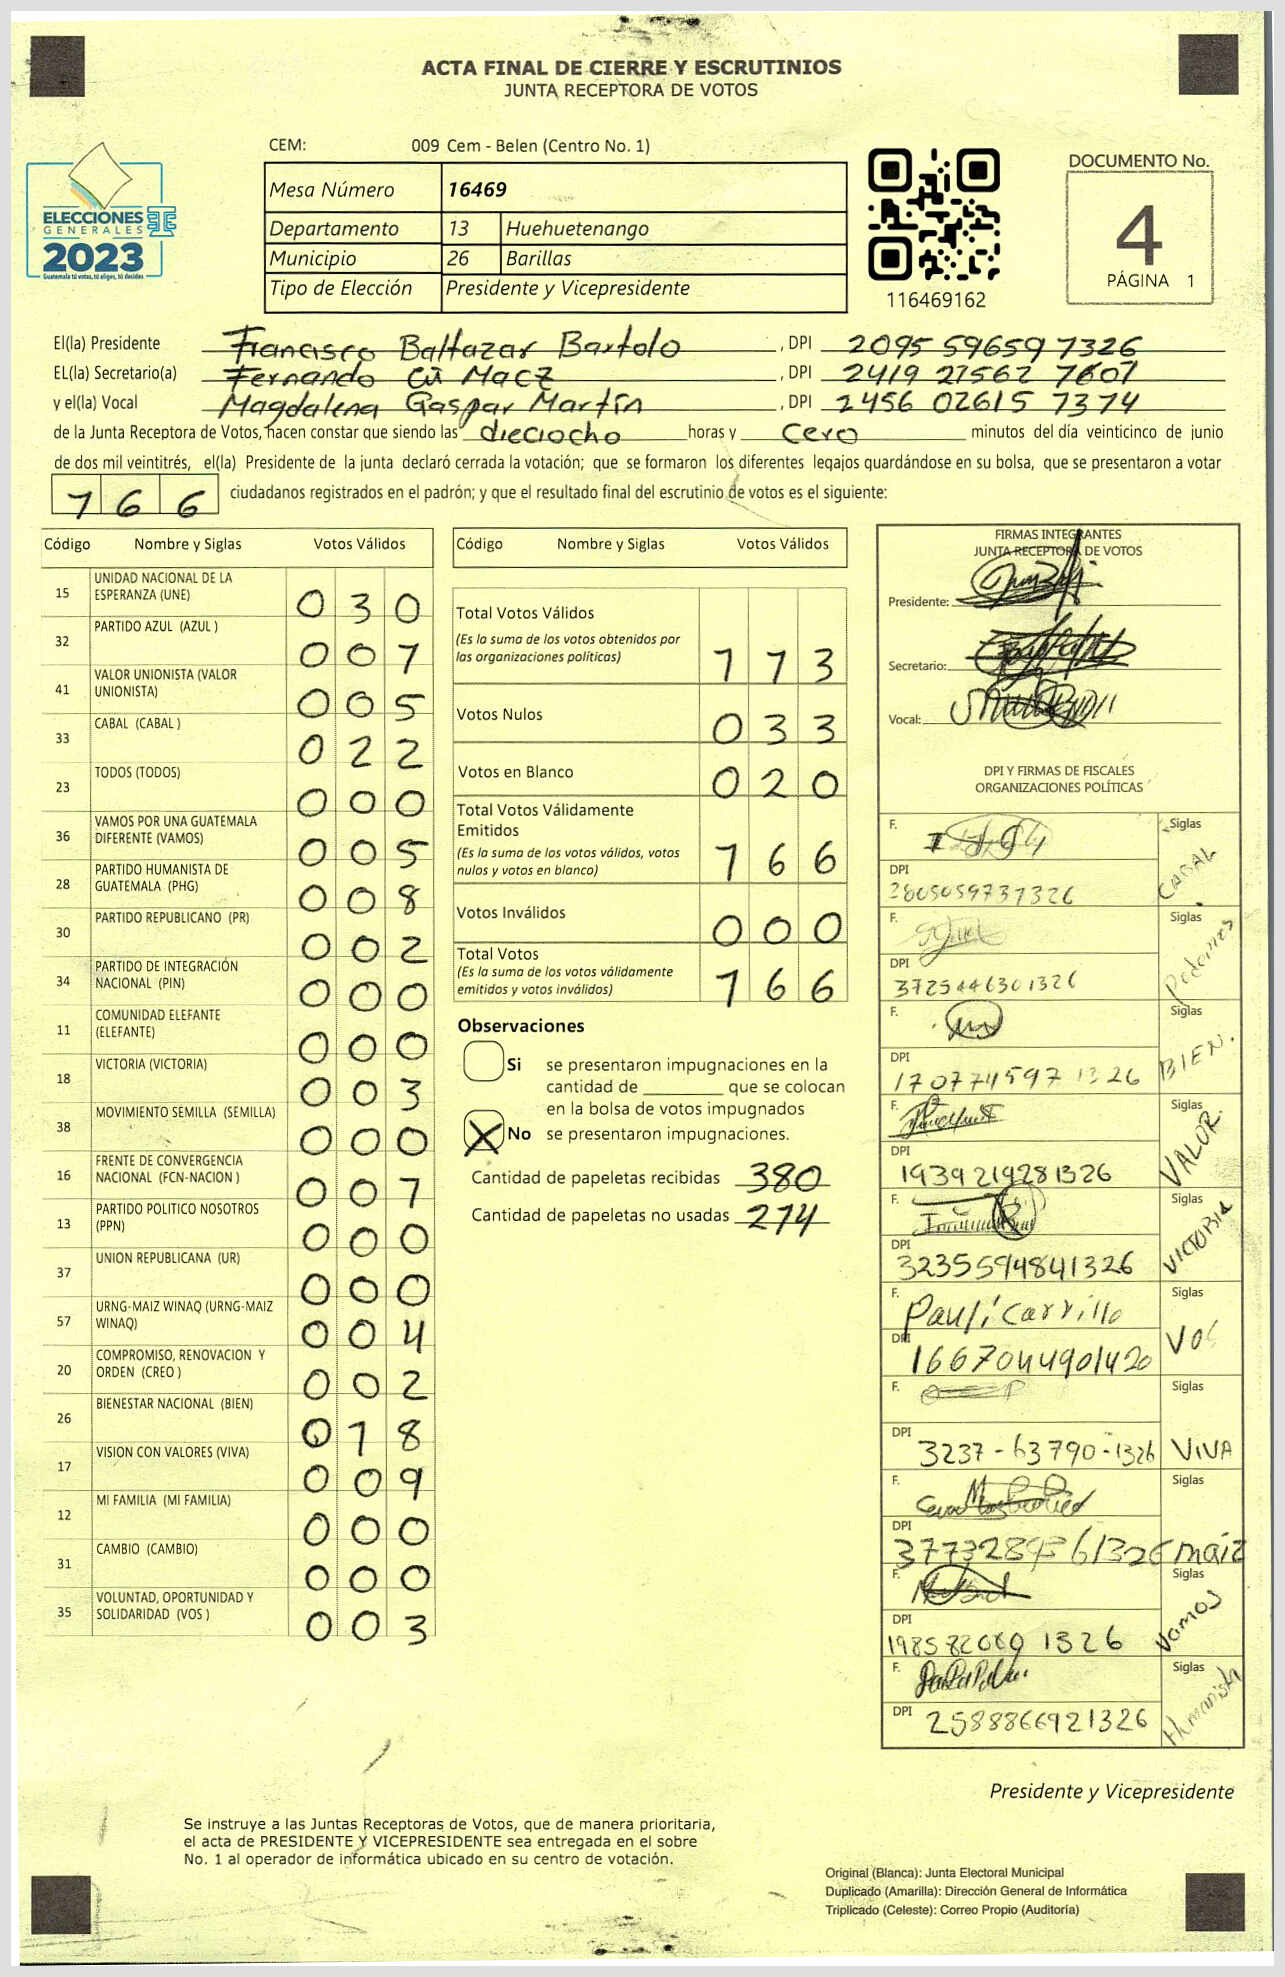 ACTA FINAL DE CIERRE Y ESCRUTINIOS
JUNTA RECEPTORA DE VOTOS
CEM: 009 Cem - Belen (Centro No. 1)
ELECCIONES
GENERALES
2023
Guatemala tú votas, tú eliges, tú decides
Mesa Número 16469
Departamento 13 Huehuetenango
Municipio 26 Barillas
Tipo de Elección Presidente y Vicepresidente
116469162
DOCUMENTO No.
4
PÁGINA 1
El(la) Presidente Francisco Baltazar Bartolo , DPI 2095 59659 1326
EL(la) Secretario(a) Fernando Cü Macz , DPI 2419 21562 1607
y el(la) Vocal Magdalena Gaspar Martín , DPI 2456 02615 1314
de la Junta Receptora de Votos, hacen constar que siendo las dieciocho horas y cero minutos del día veinticinco de junio
de dos mil veintitrés, el(la) Presidente de la junta declaró cerrada la votación; que se formaron los diferentes legajos guardándose en su bolsa, que se presentaron a votar
166 ciudadanos registrados en el padrón; y que el resultado final del escrutinio de votos es el siguiente:
Código Nombre y Siglas Votos Válidos
15 UNIDAD NACIONAL DE LA ESPERANZA (UNE) 030
32 PARTIDO AZUL (AZUL ) 007
41 VALOR UNIONISTA (VALOR UNIONISTA) 005
33 CABAL (CABAL ) 022
23 TODOS (TODOS) 000
36 VAMOS POR UNA GUATEMALA DIFERENTE (VAMOS) 005
28 PARTIDO HUMANISTA DE GUATEMALA (PHG) 008
30 PARTIDO REPUBLICANO (PR) 002
34 PARTIDO DE INTEGRACIÓN NACIONAL (PIN) 000
11 COMUNIDAD ELEFANTE (ELEFANTE) 000
18 VICTORIA (VICTORIA) 003
38 MOVIMIENTO SEMILLA (SEMILLA) 000
16 FRENTE DE CONVERGENCIA NACIONAL (FCN-NACION ) 007
13 PARTIDO POLITICO NOSOTROS (PPN) 000
37 UNION REPUBLICANA (UR) 000
57 URNG-MAIZ WINAQ (URNG-MAIZ WINAQ) 004
20 COMPROMISO, RENOVACION Y ORDEN (CREO ) 002
26 BIENESTAR NACIONAL (BIEN) 018
17 VISION CON VALORES (VIVA) 009
12 MI FAMILIA (MI FAMILIA) 000
31 CAMBIO (CAMBIO) 000
35 VOLUNTAD, OPORTUNIDAD Y SOLIDARIDAD (VOS ) 003
Código Nombre y Siglas Votos Válidos
Total Votos Válidos
(Es la suma de los votos obtenidos por
las organizaciones políticas) 113
Votos Nulos 033
Votos en Blanco 020
Total Votos Válidamente
Emitidos
(Es la suma de los votos válidos, votos
nulos y votos en blanco) 166
Votos Inválidos 000
Total Votos
(Es la suma de los votos válidamente
emitidos y votos inválidos) 166
Observaciones
Si se presentaron impugnaciones en la
cantidad de ________ que se colocan
en la bolsa de votos impugnados
X No se presentaron impugnaciones.
Cantidad de papeletas recibidas 380
Cantidad de papeletas no usadas 214
FIRMAS INTEGRANTES
JUNTA RECEPTORA DE VOTOS
Presidente:
Secretario:
Vocal:
DPI Y FIRMAS DE FISCALES
ORGANIZACIONES POLÍTICAS
F. Siglas CABAL
DPI 2805059731326
F. Siglas Podemos
DPI 3725446301326
F. Siglas BIEN.
DPI 170774597 1326
F. Siglas VALOR.
DPI 1939219281326
F. Siglas VICTORIA
DPI 3235594841326
F. Pauli Carrillo Siglas VOS
DPI 1667044901420
F. Siglas VIVA
DPI 3237-63790-1326
F. Siglas maíz
DPI
F. Siglas Vamos
DPI
F. Siglas Humanista
DPI 2588866921326
Presidente y Vicepresidente
Se instruye a las Juntas Receptoras de Votos, que de manera prioritaria,
el acta de PRESIDENTE Y VICEPRESIDENTE sea entregada en el sobre
No. 1 al operador de informática ubicado en su centro de votación.
Original (Blanca): Junta Electoral Municipal
Duplicado (Amarilla): Dirección General de Informática
Triplicado (Celeste): Correo Propio (Auditoría)